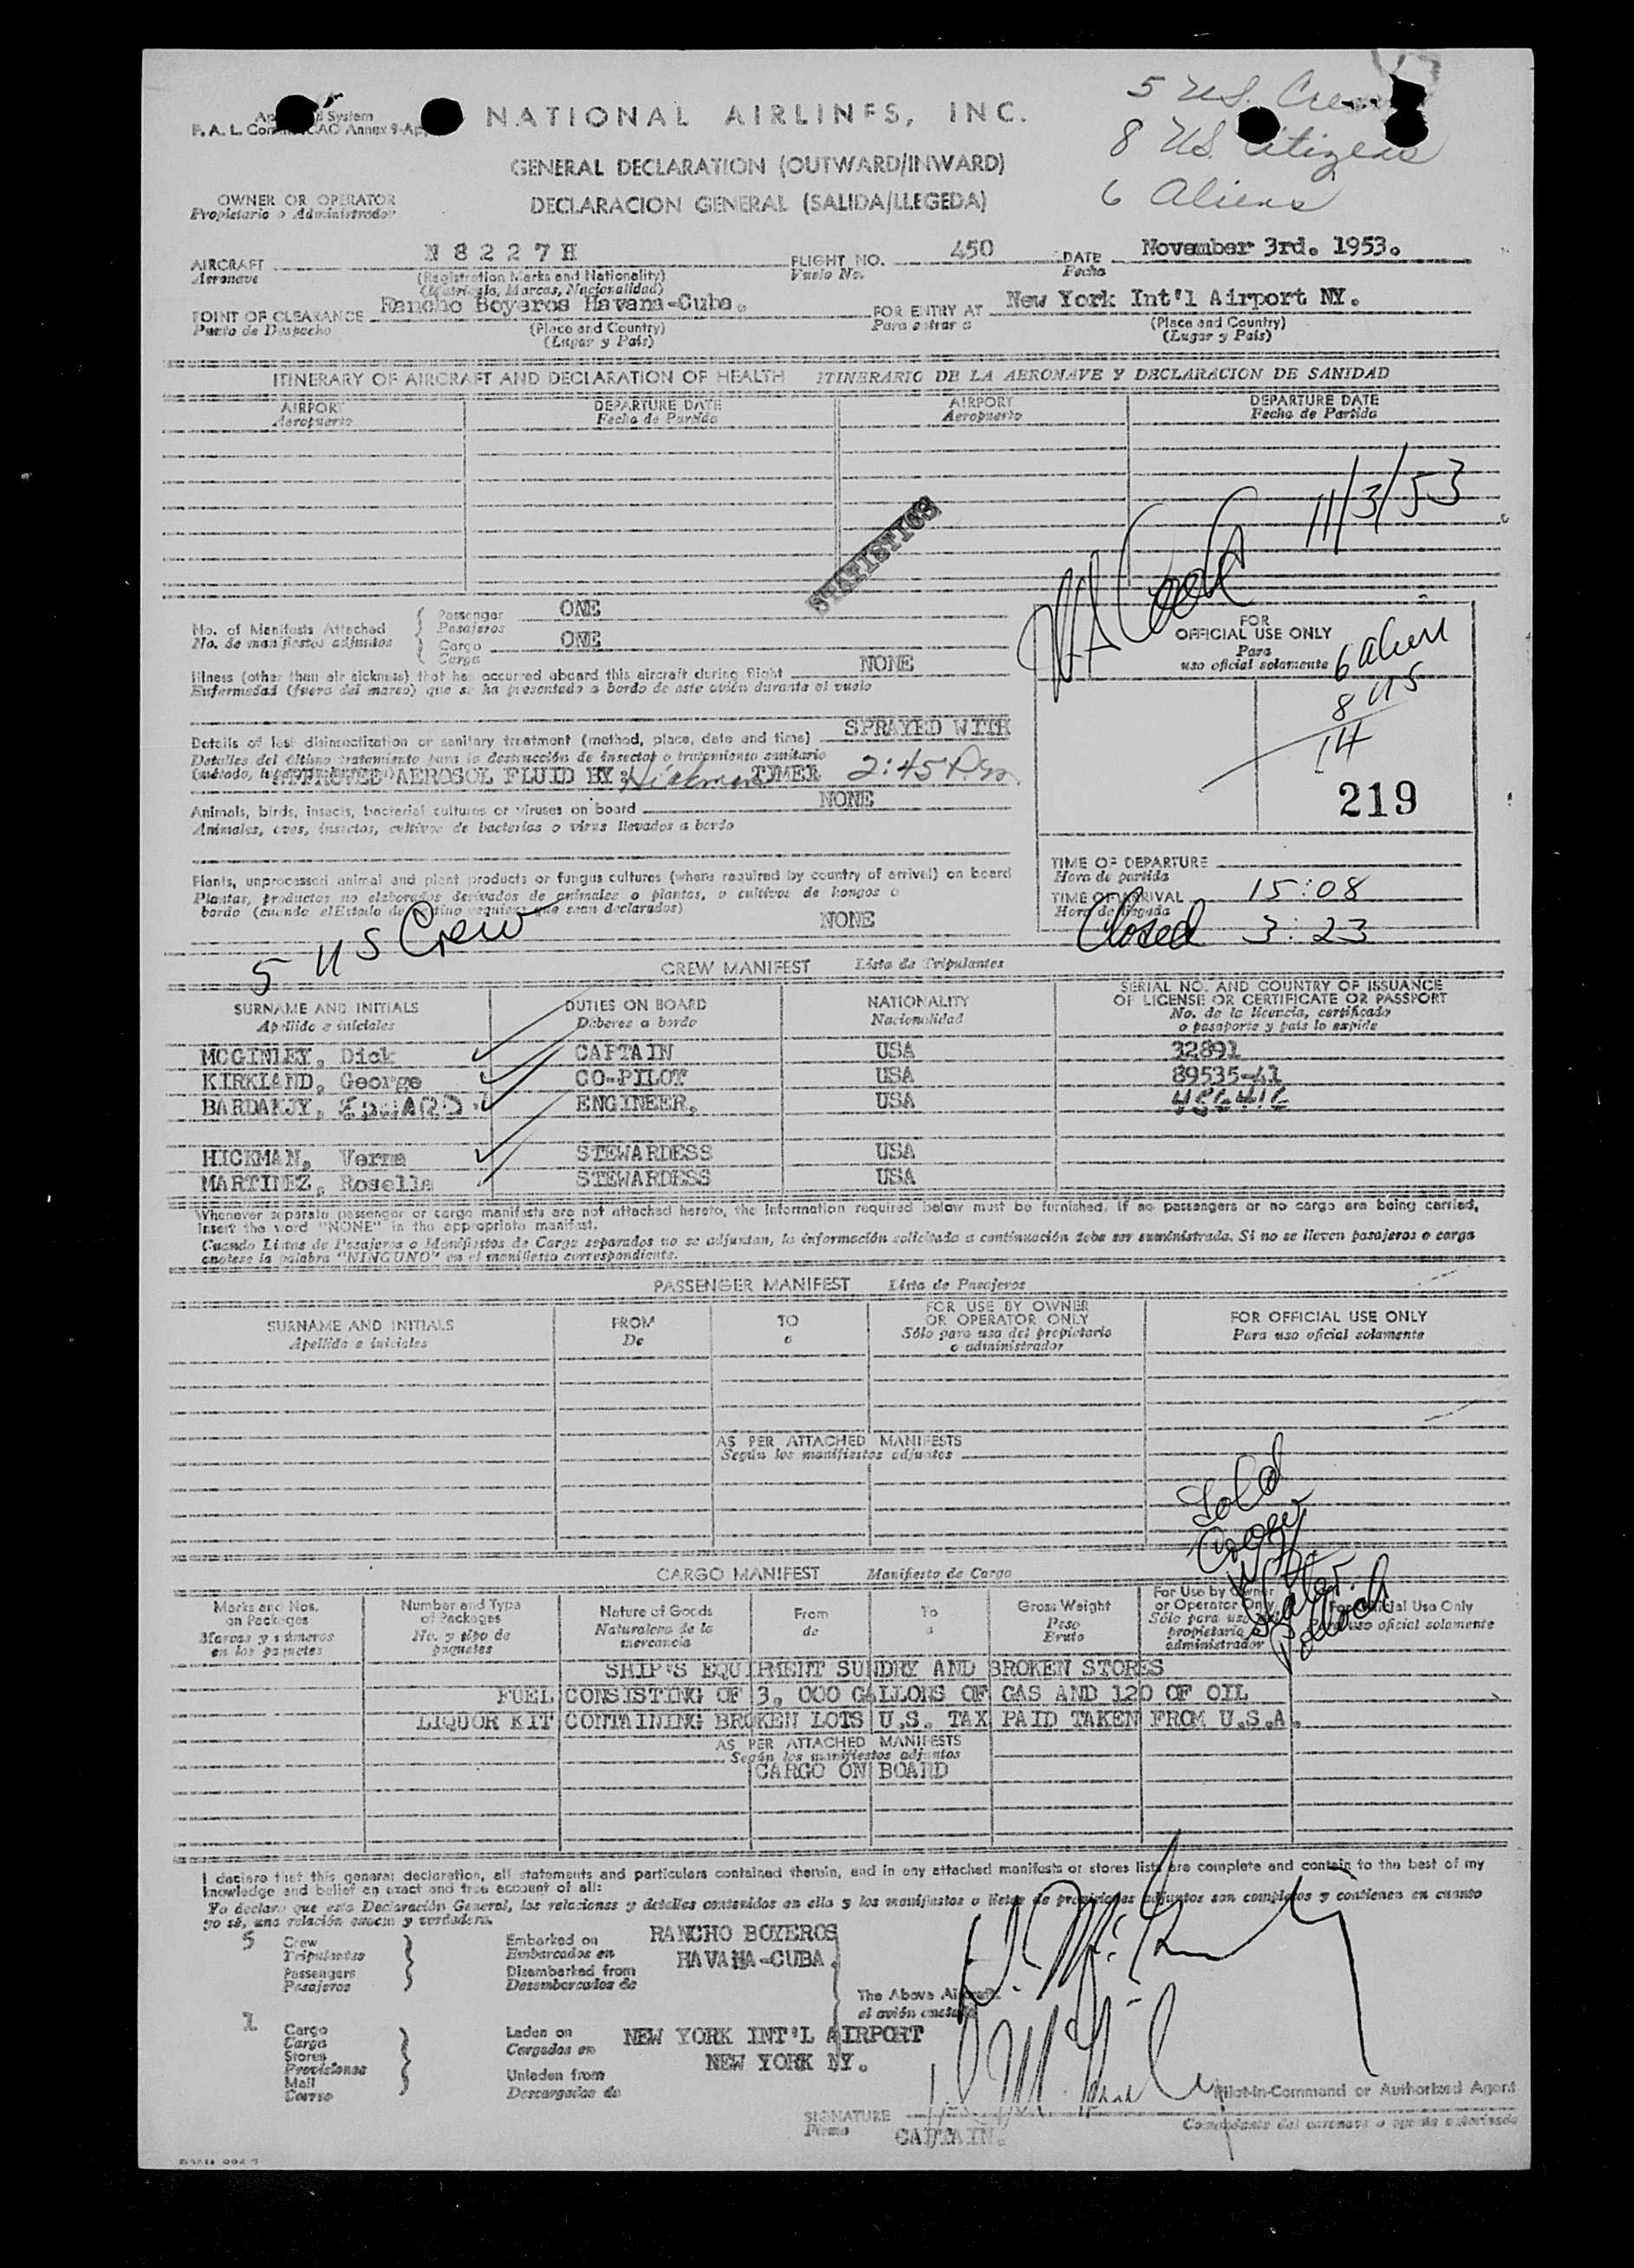 5 US. Crew
NATIONAL AIRLINES, INC.
8 US. Citizens
F. A. L.
GENERAL DECLARATION (OUTWARD/INWARD)
6 Aliens
OWNER OR OPERATOR
Propietario o Administrador
DECLARACION GENERAL (SALIDA/LLEGEDA)
AIRCRAFT N 8 2 2 7 H FLIGHT NO. 450 DATE November 3rd. 1953.
Aeronave (Registration Marks and Nationality) Vuelo No. Fecha
(Matricula, Marcas, Nacionalidad)
POINT OF CLEARANCE Rancho Boyeros Havana-Cuba. FOR ENTRY AT New York Int'l Airport NY.
Punto de Despacho (Place and Country) Para entrar a (Place and Country)
(Lugar y País) (Lugar y País)
ITINERARY OF AIRCRAFT AND DECLARATION OF HEALTH ITINERARIO DE LA AERONAVE Y DECLARACION DE SANIDAD
AIRPORT DEPARTURE DATE AIRPORT DEPARTURE DATE
Aeropuerto Fecha de Partida Aeropuerto Fecha de Partida
11/3/53
STATISTICS
Cook
No. of Manifests Attached Passenger ONE
No. de manifiestos adjuntos Pasajeros
Cargo ONE
Carga
FOR
OFFICIAL USE ONLY
Para
uso oficial solamente
6 alien
8 US
14
219
Illness (other than air sickness) that has occurred aboard this aircraft during flight NONE
Enfermedad (fuera del mareo) que se ha presentado a bordo de este avión durante el vuelo
Details of last disinsectization or sanitary treatment (method, place, date and time) SPRAYED WITH
Detalles del último tratamiento para la destrucción de insectos o tratamiento sanitario
AEROSOL FLUID BY: Hickman TIME: 2:45 Pm.
Animals, birds, insects, bacterial cultures or viruses on board NONE
Animales, aves, insectos, cultivos de bacterias o virus llevados a bordo
Plants, unprocessed animal and plant products or fungus cultures (where required by country of arrival) on board
Plantas, productos no elaborados derivados de animales o plantas, o cultivos de hongos a
bordo (cuando el Estado de destino requiera que sean declarados) NONE
TIME OF DEPARTURE
Hora de partida
TIME OF ARRIVAL 15:08
Hora de llegada
Closed 3:23
5 US Crew
CREW MANIFEST Lista de Tripulantes
SURNAME AND INITIALS DUTIES ON BOARD NATIONALITY SERIAL NO. AND COUNTRY OF ISSUANCE
OF LICENSE OR CERTIFICATE OR PASSPORT
Apellido e iniciales Deberes a bordo Nacionalidad No. de la licencia, certificado
o pasaporte y país lo expide
MCGINLEY, Dick CAPTAIN USA 32891
KIRKLAND, George CO-PILOT USA 89535-41
BARDAKJY, EDWARD. ENGINEER. USA
HICKMAN, Verna STEWARDESS USA
MARTINEZ, Rosella STEWARDESS USA
Whenever separate passenger or cargo manifests are not attached hereto, the information required below must be furnished. If no passengers or no cargo are being carried,
insert the word "NONE" in the appropriate manifest.
Cuando Listas de Pasajeros o Manifiestos de Carga separados no se adjuntan, la información solicitada a continuación debe ser suministrada. Si no se lleven pasajeros o carga
anotese la palabra "NINGUNO" en el manifiesto correspondiente.
PASSENGER MANIFEST Lista de Pasajeros
SURNAME AND INITIALS FROM TO FOR USE BY OWNER
OR OPERATOR ONLY FOR OFFICIAL USE ONLY
Apellido e iniciales De a Sólo para uso del propietario
o administrador Para uso oficial solamente
AS PER ATTACHED MANIFESTS
Según los manifiestos adjuntos
CARGO MANIFEST Manifiesto de Carga
Marks and Nos.
on Packages
Marcas y números
en los paquetes
Number and Type
of Packages
No. y tipo de
paquetes
Nature of Goods
Naturaleza de la
mercancía
From
de
To
a
Gross Weight
Peso
Bruto
For Use by Owner
or Operator Only
Sólo para uso
propietario
administrador
For Official Use Only
Para uso oficial solamente
SHIP'S EQUIPMENT SUNDRY AND BROKEN STORES
FUEL CONSISTING OF 3,000 GALLONS OF GAS AND 120 OF OIL
LIQUOR KIT CONTAINING BROKEN LOTS U.S. TAX PAID TAKEN FROM U.S.A.
AS PER ATTACHED MANIFESTS
Según los manifiestos adjuntos
CARGO ON BOARD
I declare that this general declaration, all statements and particulars contained therein, and in any attached manifests or stores lists are complete and contain to the best of my
knowledge and belief an exact and true account of all:
Yo declaro que esta Declaración General, las relaciones y detalles contenidos en ella y los manifiestos o listas de provisiones adjuntos son completos y contienen en cuanto
yo sé, una relación exacta y verdadera.
5 Crew
Tripulantes
Passengers
Pasajeros
Embarked on RANCHO BOYEROS
Embarcados en HAVANA-CUBA.
Disembarked from
Desembarcados de
The Above Aircraft
el avión
1 Cargo
Carga
Stores
Provisiones
Mail
Correo
Laden on NEW YORK INT'L AIRPORT
Cargados en NEW YORK NY.
Unladen from
Descargados de
Pilot-in-Command or Authorized Agent
SIGNATURE
Firma CAPTAIN.
Comandante del aeronave o agente autorizado